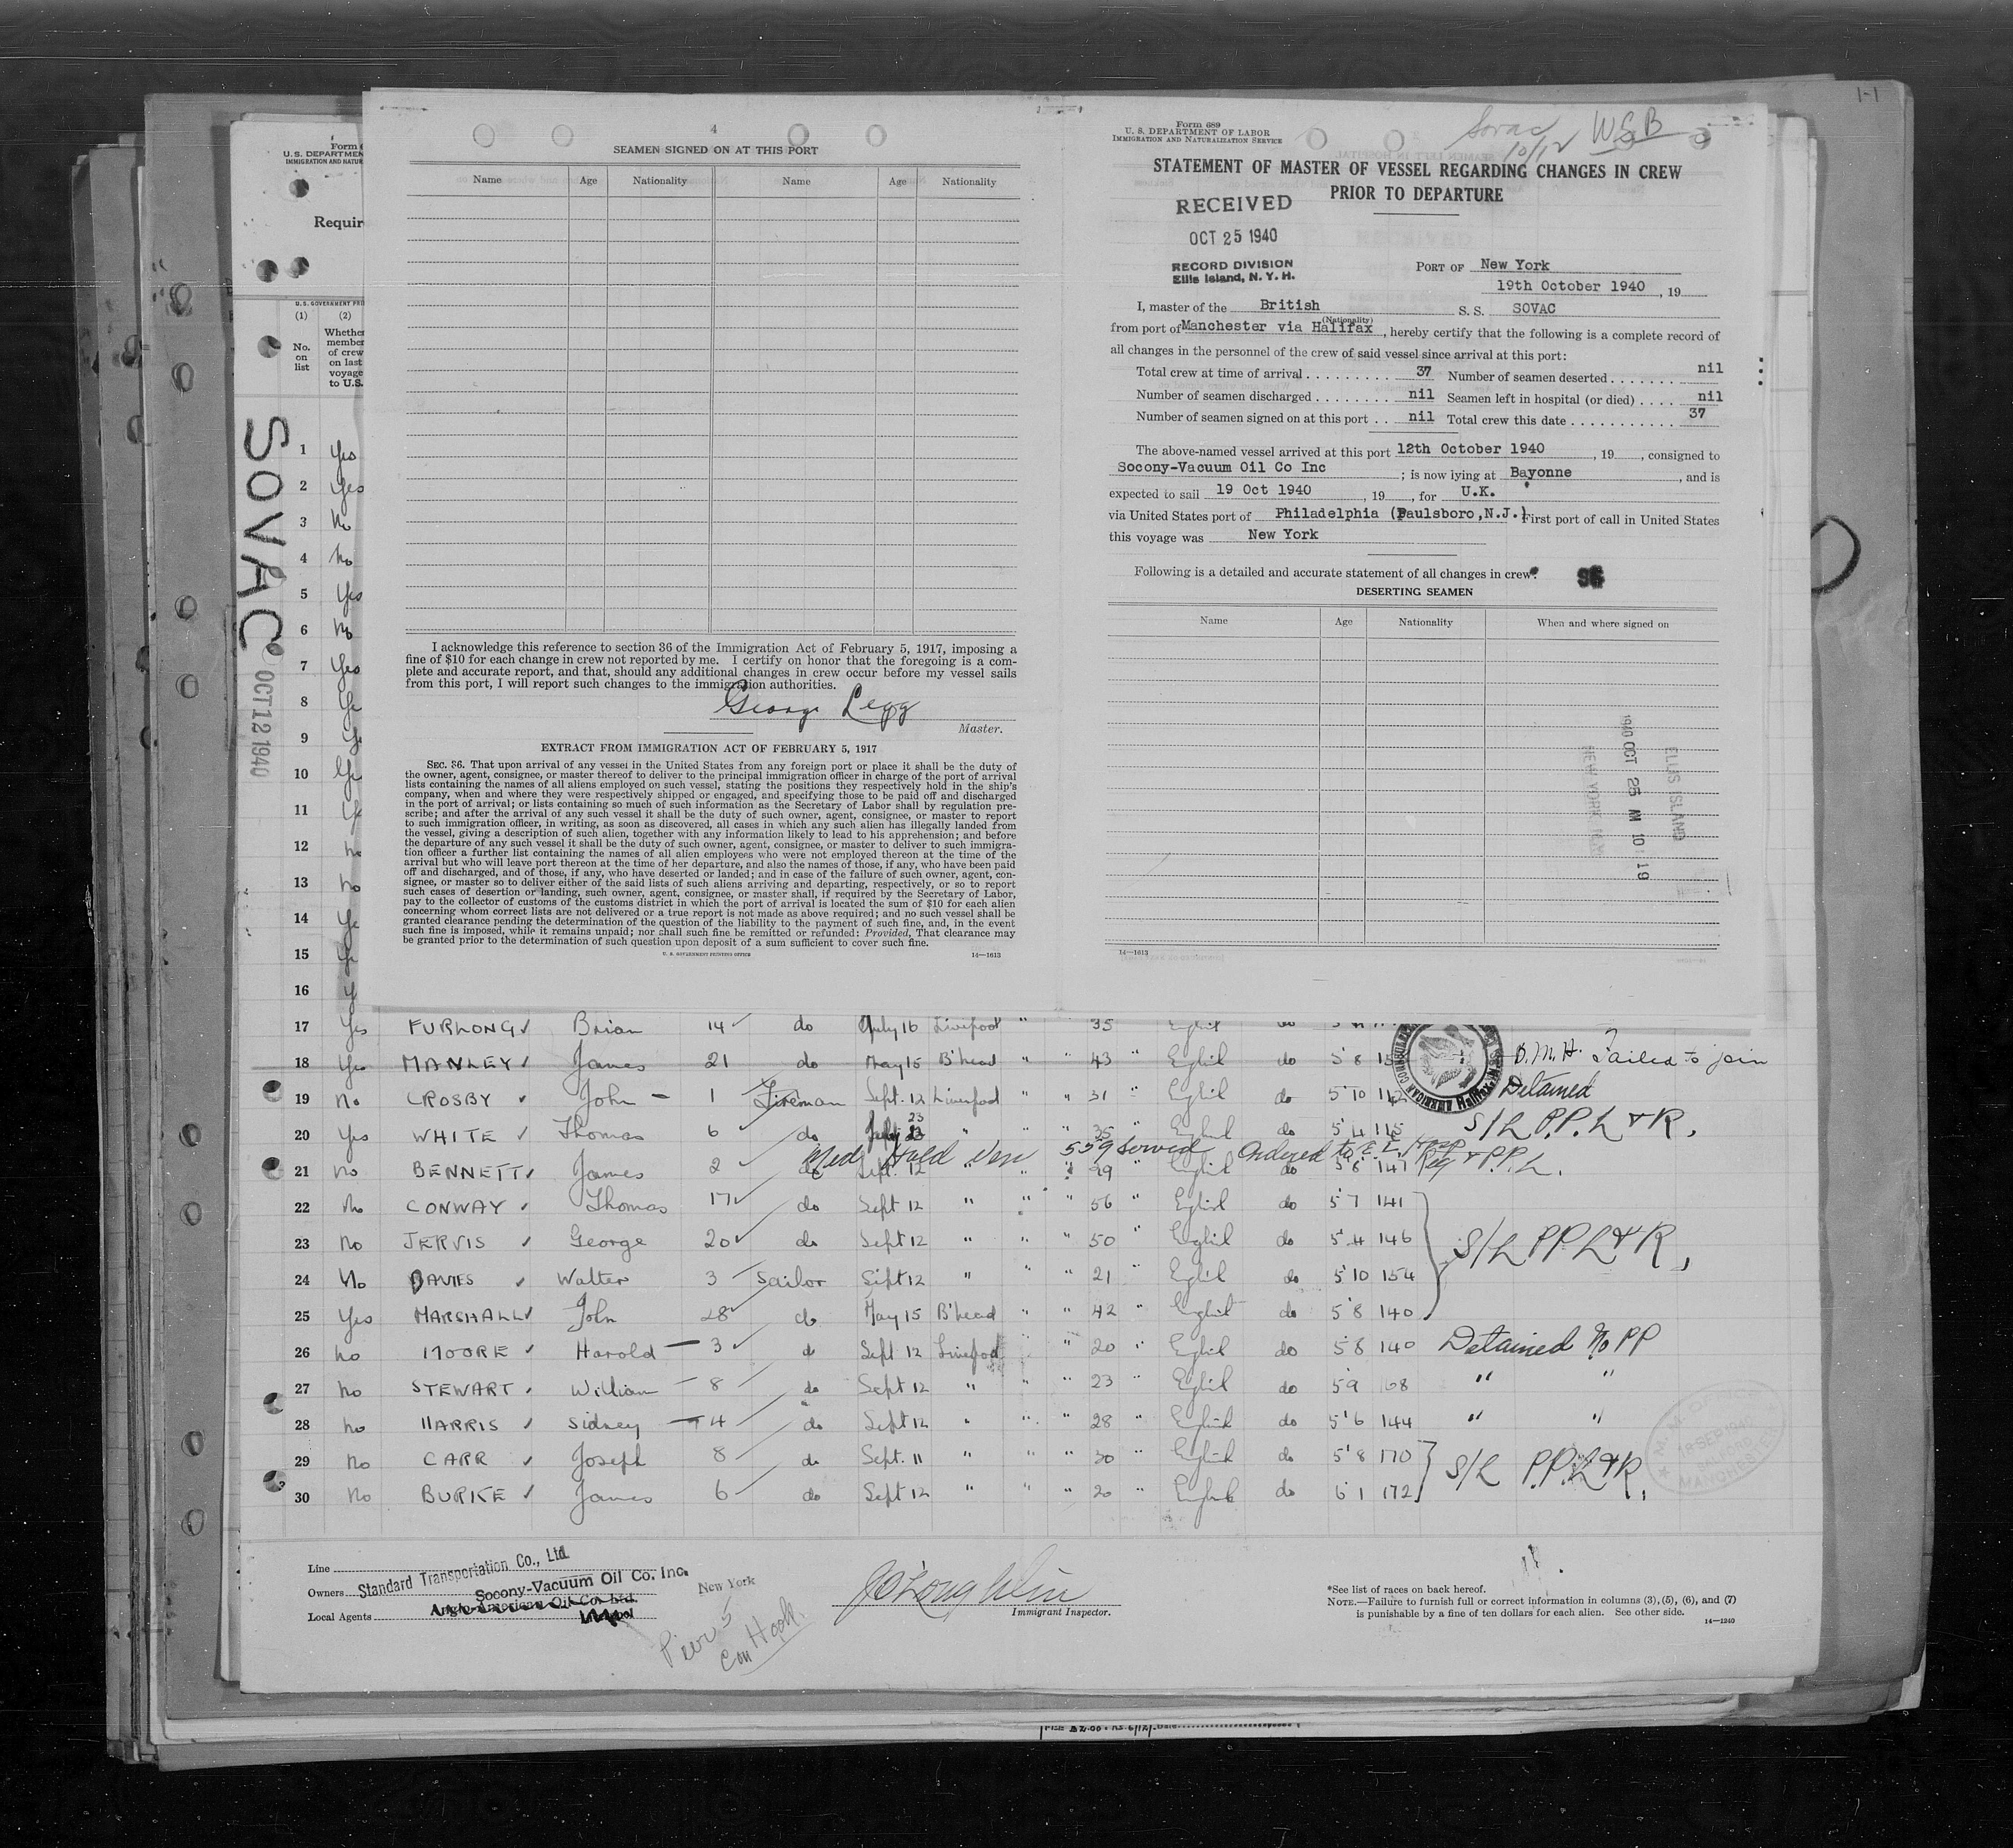 1-1
Form 6
U. S. DEPARTMEN
IMMIGRATION AND NATUR
Requir
U. S. GOVERNMENT PRI
(1) (2)
No. on list
Whether member of crew on last voyage to U.S.
SOVAC
OCT 12 1940
1 Yes
2 Yes
3 No
4 No
5 Yes
6 No
7 Yes
8 Ye
9 Ye
10 Ye
11 Ye
12 no
13 no
14 Ye
15 Ye
16 Y
4
SEAMEN SIGNED ON AT THIS PORT
Name Age Nationality Name Age Nationality
I acknowledge this reference to section 36 of the Immigration Act of February 5, 1917, imposing a
fine of $10 for each change in crew not reported by me. I certify on honor that the foregoing is a com-
plete and accurate report, and that, should any additional changes in crew occur before my vessel sails
from this port, I will report such changes to the immigration authorities.
George Legg
Master.
EXTRACT FROM IMMIGRATION ACT OF FEBRUARY 5, 1917
SEC. 36. That upon arrival of any vessel in the United States from any foreign port or place it shall be the duty of
the owner, agent, consignee, or master thereof to deliver to the principal immigration officer in charge of the port of arrival
lists containing the names of all aliens employed on such vessel, stating the positions they respectively hold in the ship's
company, when and where they were respectively shipped or engaged, and specifying those to be paid off and discharged
in the port of arrival; or lists containing so much of such information as the Secretary of Labor shall by regulation pre-
scribe; and after the arrival of any such vessel it shall be the duty of such owner, agent, consignee, or master to report
to such immigration officer, in writing, as soon as discovered, all cases in which any such alien has illegally landed from
the vessel, giving a description of such alien, together with any information likely to lead to his apprehension; and before
the departure of any such vessel it shall be the duty of such owner, agent, consignee, or master to deliver to such immigra-
tion officer a further list containing the names of all alien employees who were not employed thereon at the time of the
arrival but who will leave port thereon at the time of her departure, and also the names of those, if any, who have been paid
off and discharged, and of those, if any, who have deserted or landed; and in case of the failure of such owner, agent, con-
signee, or master so to deliver either of the said lists of such aliens arriving and departing, respectively, or so to report
such cases of desertion or landing, such owner, agent, consignee, or master shall, if required by the Secretary of Labor,
pay to the collector of customs of the customs district in which the port of arrival is located the sum of $10 for each alien
concerning whom correct lists are not delivered or a true report is not made as above required; and no such vessel shall be
granted clearance pending the determination of the question of the liability to the payment of such fine, and, in the event
such fine is imposed, while it remains unpaid; nor shall such fine be remitted or refunded: Provided, That clearance may
be granted prior to the determination of such question upon deposit of a sum sufficient to cover such fine.
U. S. GOVERNMENT PRINTING OFFICE 14—1613
Form 689
U. S. DEPARTMENT OF LABOR
IMMIGRATION AND NATURALIZATION SERVICE
Sovac 10/12 WSB
STATEMENT OF MASTER OF VESSEL REGARDING CHANGES IN CREW
PRIOR TO DEPARTURE
RECEIVED
OCT 25 1940
RECORD DIVISION
Ellis Island, N. Y. H.
PORT OF New York
19th October 1940, 19
I, master of the British S. S. SOVAC
(Nationality)
from port of Manchester via Halifax, hereby certify that the following is a complete record of
all changes in the personnel of the crew of said vessel since arrival at this port:
Total crew at time of arrival . . . . . . . . . 37 Number of seamen deserted . . . . . . . nil
Number of seamen discharged . . . . . . . . nil Seamen left in hospital (or died) . . . . nil
Number of seamen signed on at this port . . nil Total crew this date . . . . . . . . . . . . 37
The above-named vessel arrived at this port 12th October 1940, 19, consigned to
Socony-Vacuum Oil Co Inc; is now lying at Bayonne, and is
expected to sail 19 Oct 1940, 19, for U.K.
via United States port of Philadelphia (Paulsboro,N.J.) First port of call in United States
this voyage was New York
Following is a detailed and accurate statement of all changes in crew:
96
DESERTING SEAMEN
Name Age Nationality When and where signed on
ELLIS ISLAND
1940 OCT 25 AM 10 19
NEW YORK
14—1613
17 Yes FURLONG Brian 14 do July 16 Liverpool " 35 English do
18 Yes MANLEY James 21 do May 15 B'head " " 43 " English do 5'8 O.M.H. Failed to join
19 No CROSBY John — 1 Fireman Sept. 12 Liverpool " " 31 " English do 5'10 112 Detained
20 Yes WHITE Thomas 6 do July 23 " " " 35 " English do 5'4 115 S/L P.P. L & R.
Med Held Ven 559 Served Ordered to E.I. Hosp
21 no BENNETT James 2 do Sept. 12 " " 29 " English do 5'6 141 Reg & P.P.L.
22 No CONWAY Thomas 17 do Sept 12 " " " 56 " English do 5'7 141
23 No JERVIS George 20 do Sept 12 " " " 50 " English do 5'4 146 S/L PP L & R.
24 No DAVIES Walter 3 Sailor Sept 12 " " 21 " English do 5'10 154
25 Yes MARSHALL John 28 do May 15 B'head " " 42 " English do 5'8 140
26 no MOORE Harold — 3 do Sept 12 Liverpool " " 20 " English do 5'8 140 Detained No PP
27 no STEWART William — 8 do Sept 12 " " " 23 " English do 5'9 " "
28 no HARRIS Sidney — 4 do Sept 12 " " " 28 " English do 5'6 144 " "
29 no CARR Joseph 8 do Sept. 11 " " " 30 " English do 5'8 170
30 No BURKE James 6 do Sept 12 " " " 20 " English do 6'1 172 S/L P.P. L & R.
AMERICAN CONSULAR
Halifax, N.S.
M. M. O
18 SEP 1940
MANCHESTER
Line
Owners Standard Transportation Co., Ltd.
Socony-Vacuum Oil Co. Inc.
New York
Local Agents Anglo-American Oil Co. Ltd.
Pier 5
Con Hook.
J O'Loughlin
Immigrant Inspector.
*See list of races on back hereof.
NOTE.—Failure to furnish full or correct information in columns (3), (5), (6), and (7)
is punishable by a fine of ten dollars for each alien. See other side.
14—1240